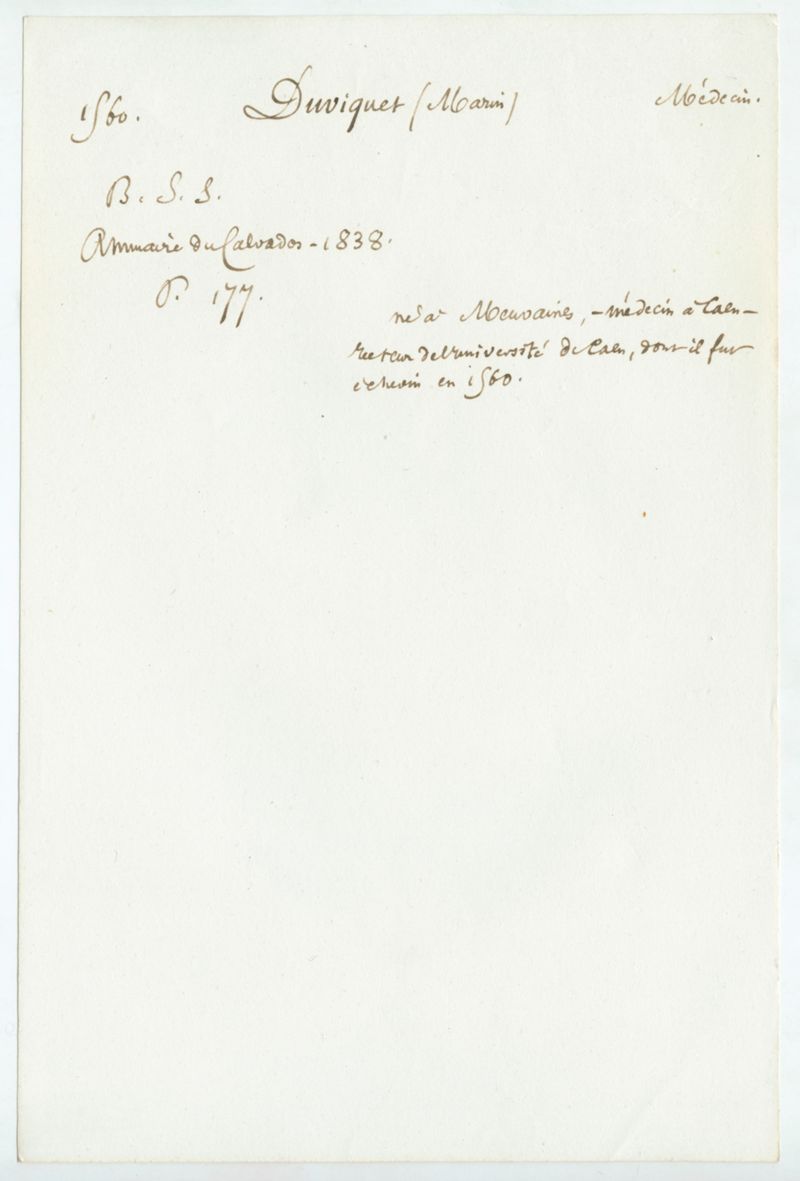 1560. Duviquet (Marin) Médecin.
B. S. S.
Annuaire du Calvados - 1838.
P. 177.
né à Meuvaines, - médecin à Caen -
recteur de l'université de Caen, dont il fut
échevin en 1560.